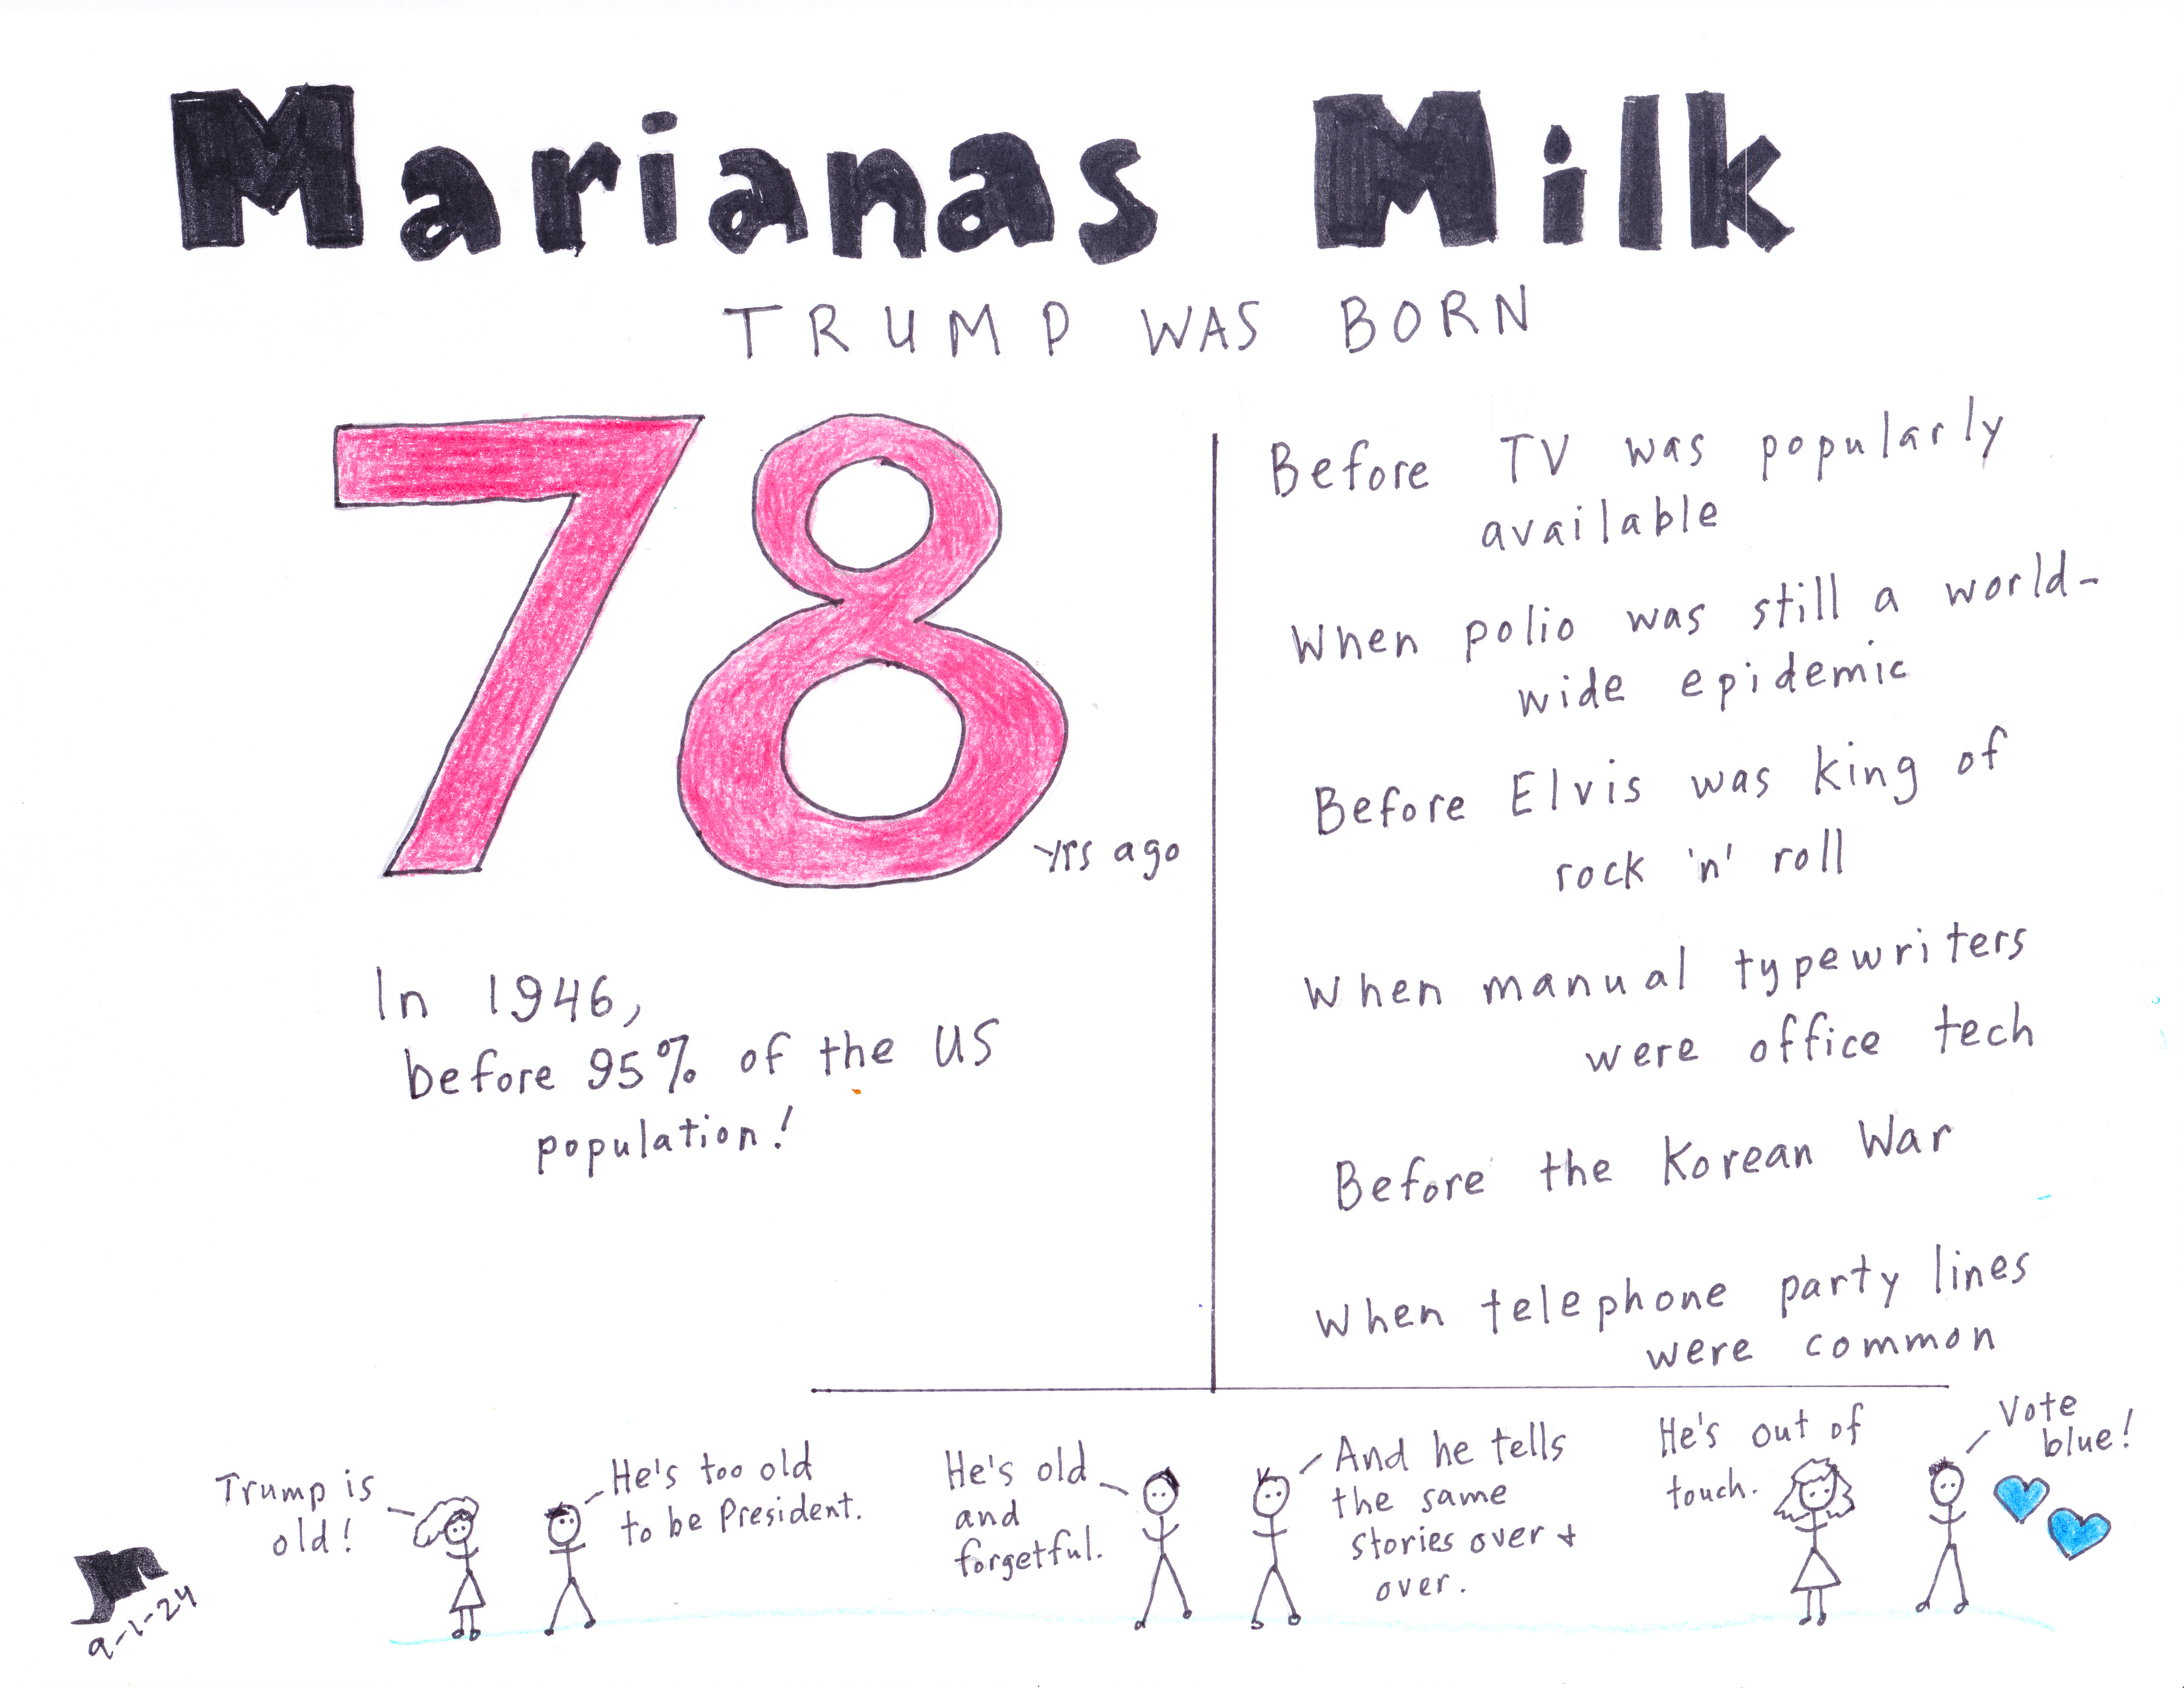 Marianas Milk
TRUMP WAS BORN
78
yrs ago
In 1946,
before 95% of the US
population!
Before TV was popularly
available
When polio was still a world-
wide epidemic
Before Elvis was king of
rock 'n' roll
When manual typewriters
were office tech
Before the Korean War
When telephone party lines
were common
Trump is
old!
He's too old
to be President.
He's old
and
forgetful.
And he tells
the same
stories over +
over.
He's out of
touch.
Vote
blue!
9-1-24